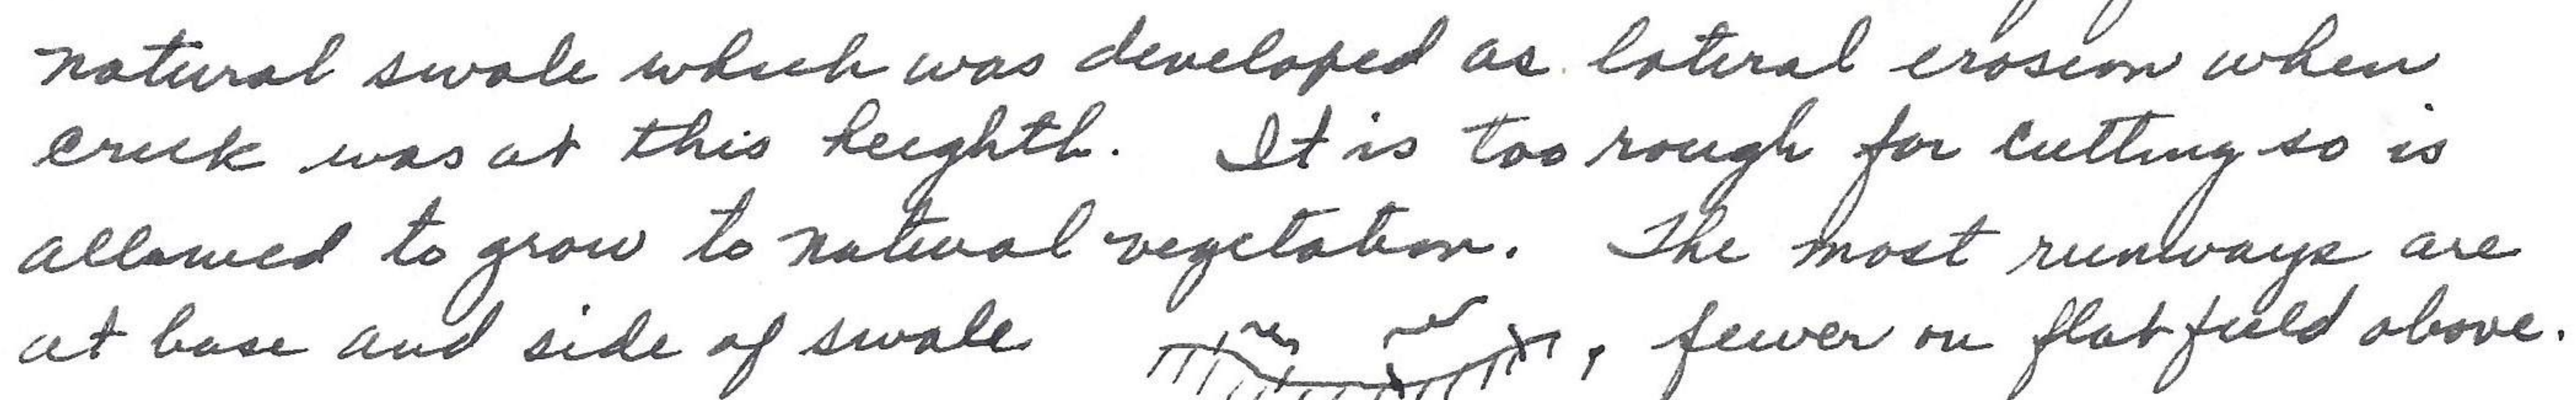 natural swale which was developed as lateral erosion when
creek was at this heighth. It is too rough for cutting so is
allowed to grow to natural vegetation. The most runways are
at base and side of swale , fewer on flat field above.